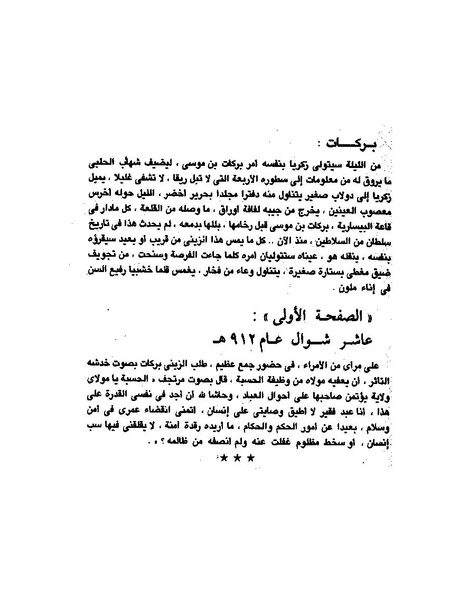 بركــات :
من الليلة سيتولى زكريا بنفسه أمر بركات بن موسى ، ليضيف شهاب الحلبى
ما يروق له من معلومات إلى سطوره الأربعة التى لا تبل ريقا ، لا تشفى غليلا ، يميل
زكريا إلى دولاب صغير يتناول منه دفترا مجلدا بحرير أخضر ، الليل حوله أخرس
معصوب العينين ، يخرج من جيبه لفافة أوراق ، ما وصله من القلعة ، كل مادار فى
قاعة البيسارية ، بركات بن موسى قبل رخامها ، بللها بدمعه ، لم يحدث هذا فى تاريخ
سلطان من السلاطين ، منذ الآن .. كل ما يمس هذا الزينى من قريب أو بعيد سيقرؤه
بنفسه ، ينقله هو ، عيناه ستتوليان أمره كلما جاءت الفرصة وسنحت ، من تجويف
ضيق مغطى بستارة صغيرة ، يتناول وعاء من فخار ، يغمس قلما خشبيا رفيع السن
فى إناء ملون .
« الصفحة الأولى » :
عاشر شــوال عـام ٩١٢ هـ
على مرأى من الأمراء ، فى حضور جمع عظيم ، طلب الزينى بركات بصوت خدشه
التأثر ، أن يعفيه مولاه من وظيفة الحسبة ، قال بصوت مرتجف « الحسبة يا مولاى
ولاية يؤتمن صاحبها على أحوال العباد ، وحاشا لله أن أجد فى نفسى القدرة على
هذا ، أنا عبد فقير لا أطيق وصايتى على إنسان ، أتمنى انقضاء عمرى فى أمن
وسلام ، بعيدا عن أمور الحكم والحكام ، ما أريده رقدة آمنة ، لا يقلقنى فيها سب
إنسان ، أو سخط مظلوم غفلت عنه ولم أنصفه من ظالمه ؟ » .
★ ★ ★